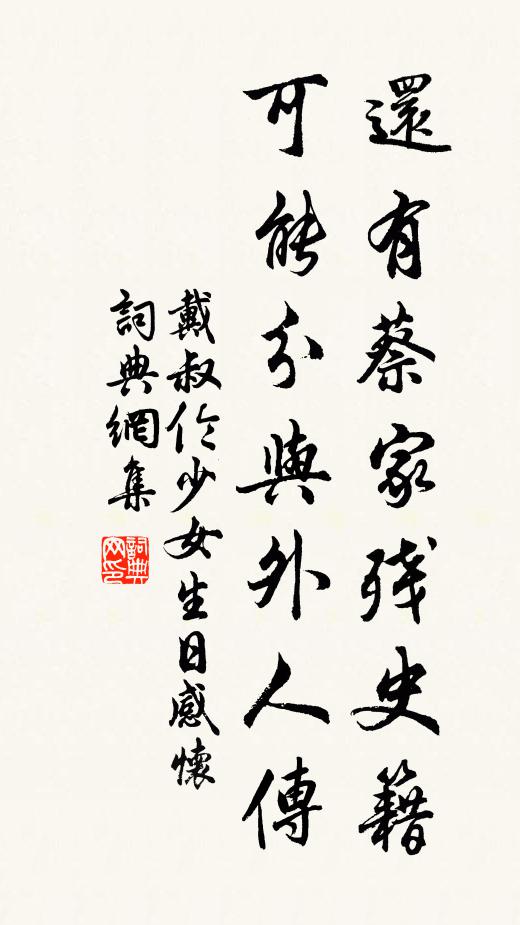 還有蔡家残史籍
可能分與外人傳
戴叔伦少女生日感懷
詞典網集
詞典网印